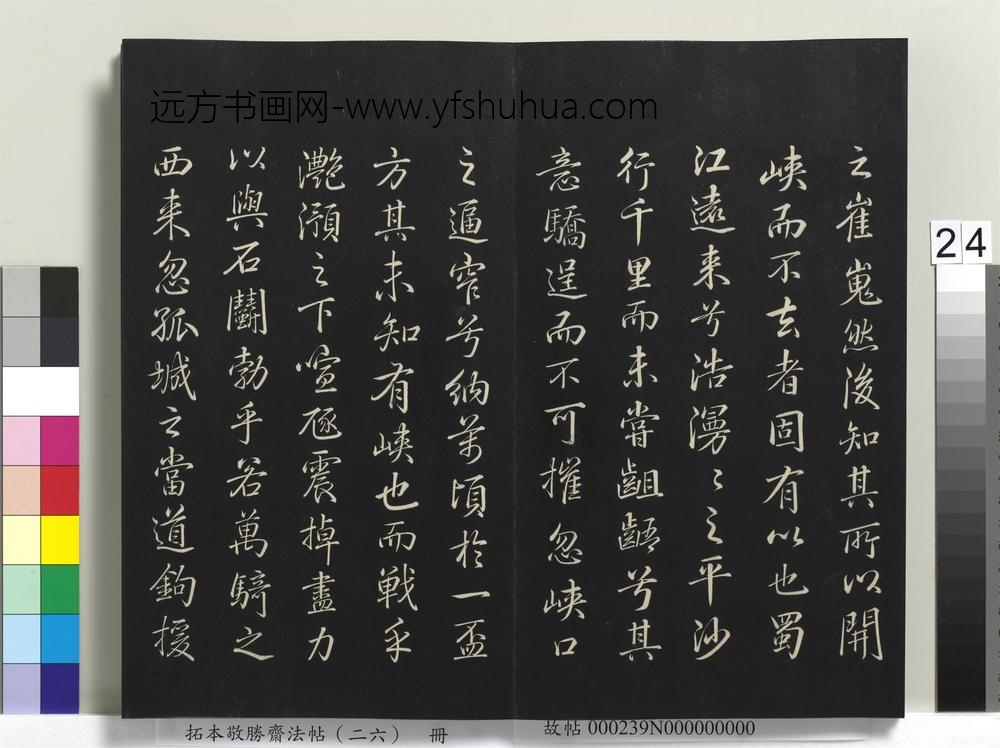 远方书画网-www.yfshuhua.com
之崔嵬然後知其所以開
峽而不去者固有以也蜀
江遠来兮浩漫〻之平沙
行千里而未嘗齟齬兮其
意驕逞而不可摧忽峽口
之逼窄兮納萬頃於一盃
方其未知有峽也而戰乎
灧澦之下喧豗震掉盡力
以與石鬭勃乎若萬騎之
西来忽孤城之當道鉤援
24
拓本敬勝齋法帖（二六） 冊
故帖 000239N000000000